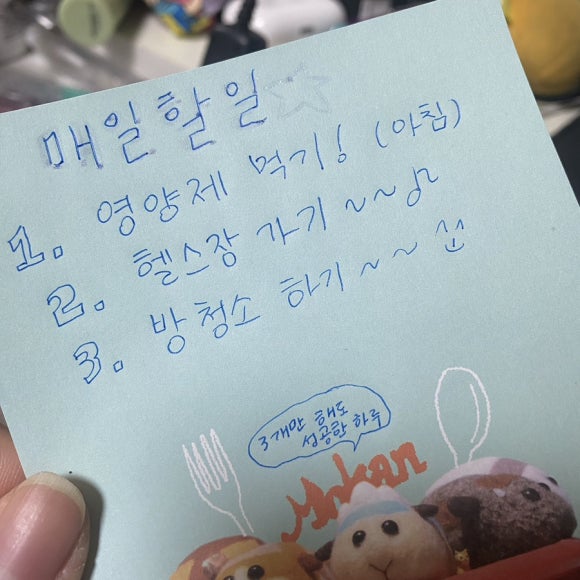 매일할일☆
1. 영양제 먹기! (아침)
2. 헬스장 가기~~♪
3. 방청소 하기~~
3개만 해도
성공한 하루